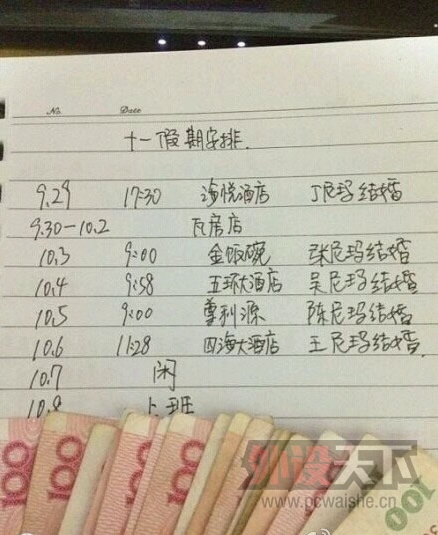 No. Date
十一假期安排.
9.29 17:30 海悦酒店 丁尼玛结婚
9.30-10.2 瓦房店
10.3 9:00 金饭碗 张尼玛结婚
10.4 9:58 五环大酒店 吴尼玛结婚
10.5 9:00 尊利源 陈尼玛结婚
10.6 11:28 四海大酒店 王尼玛结婚.
10.7 闲
10.8 上班
100 100 100 100
外设天下
www.pcwaishe.cn